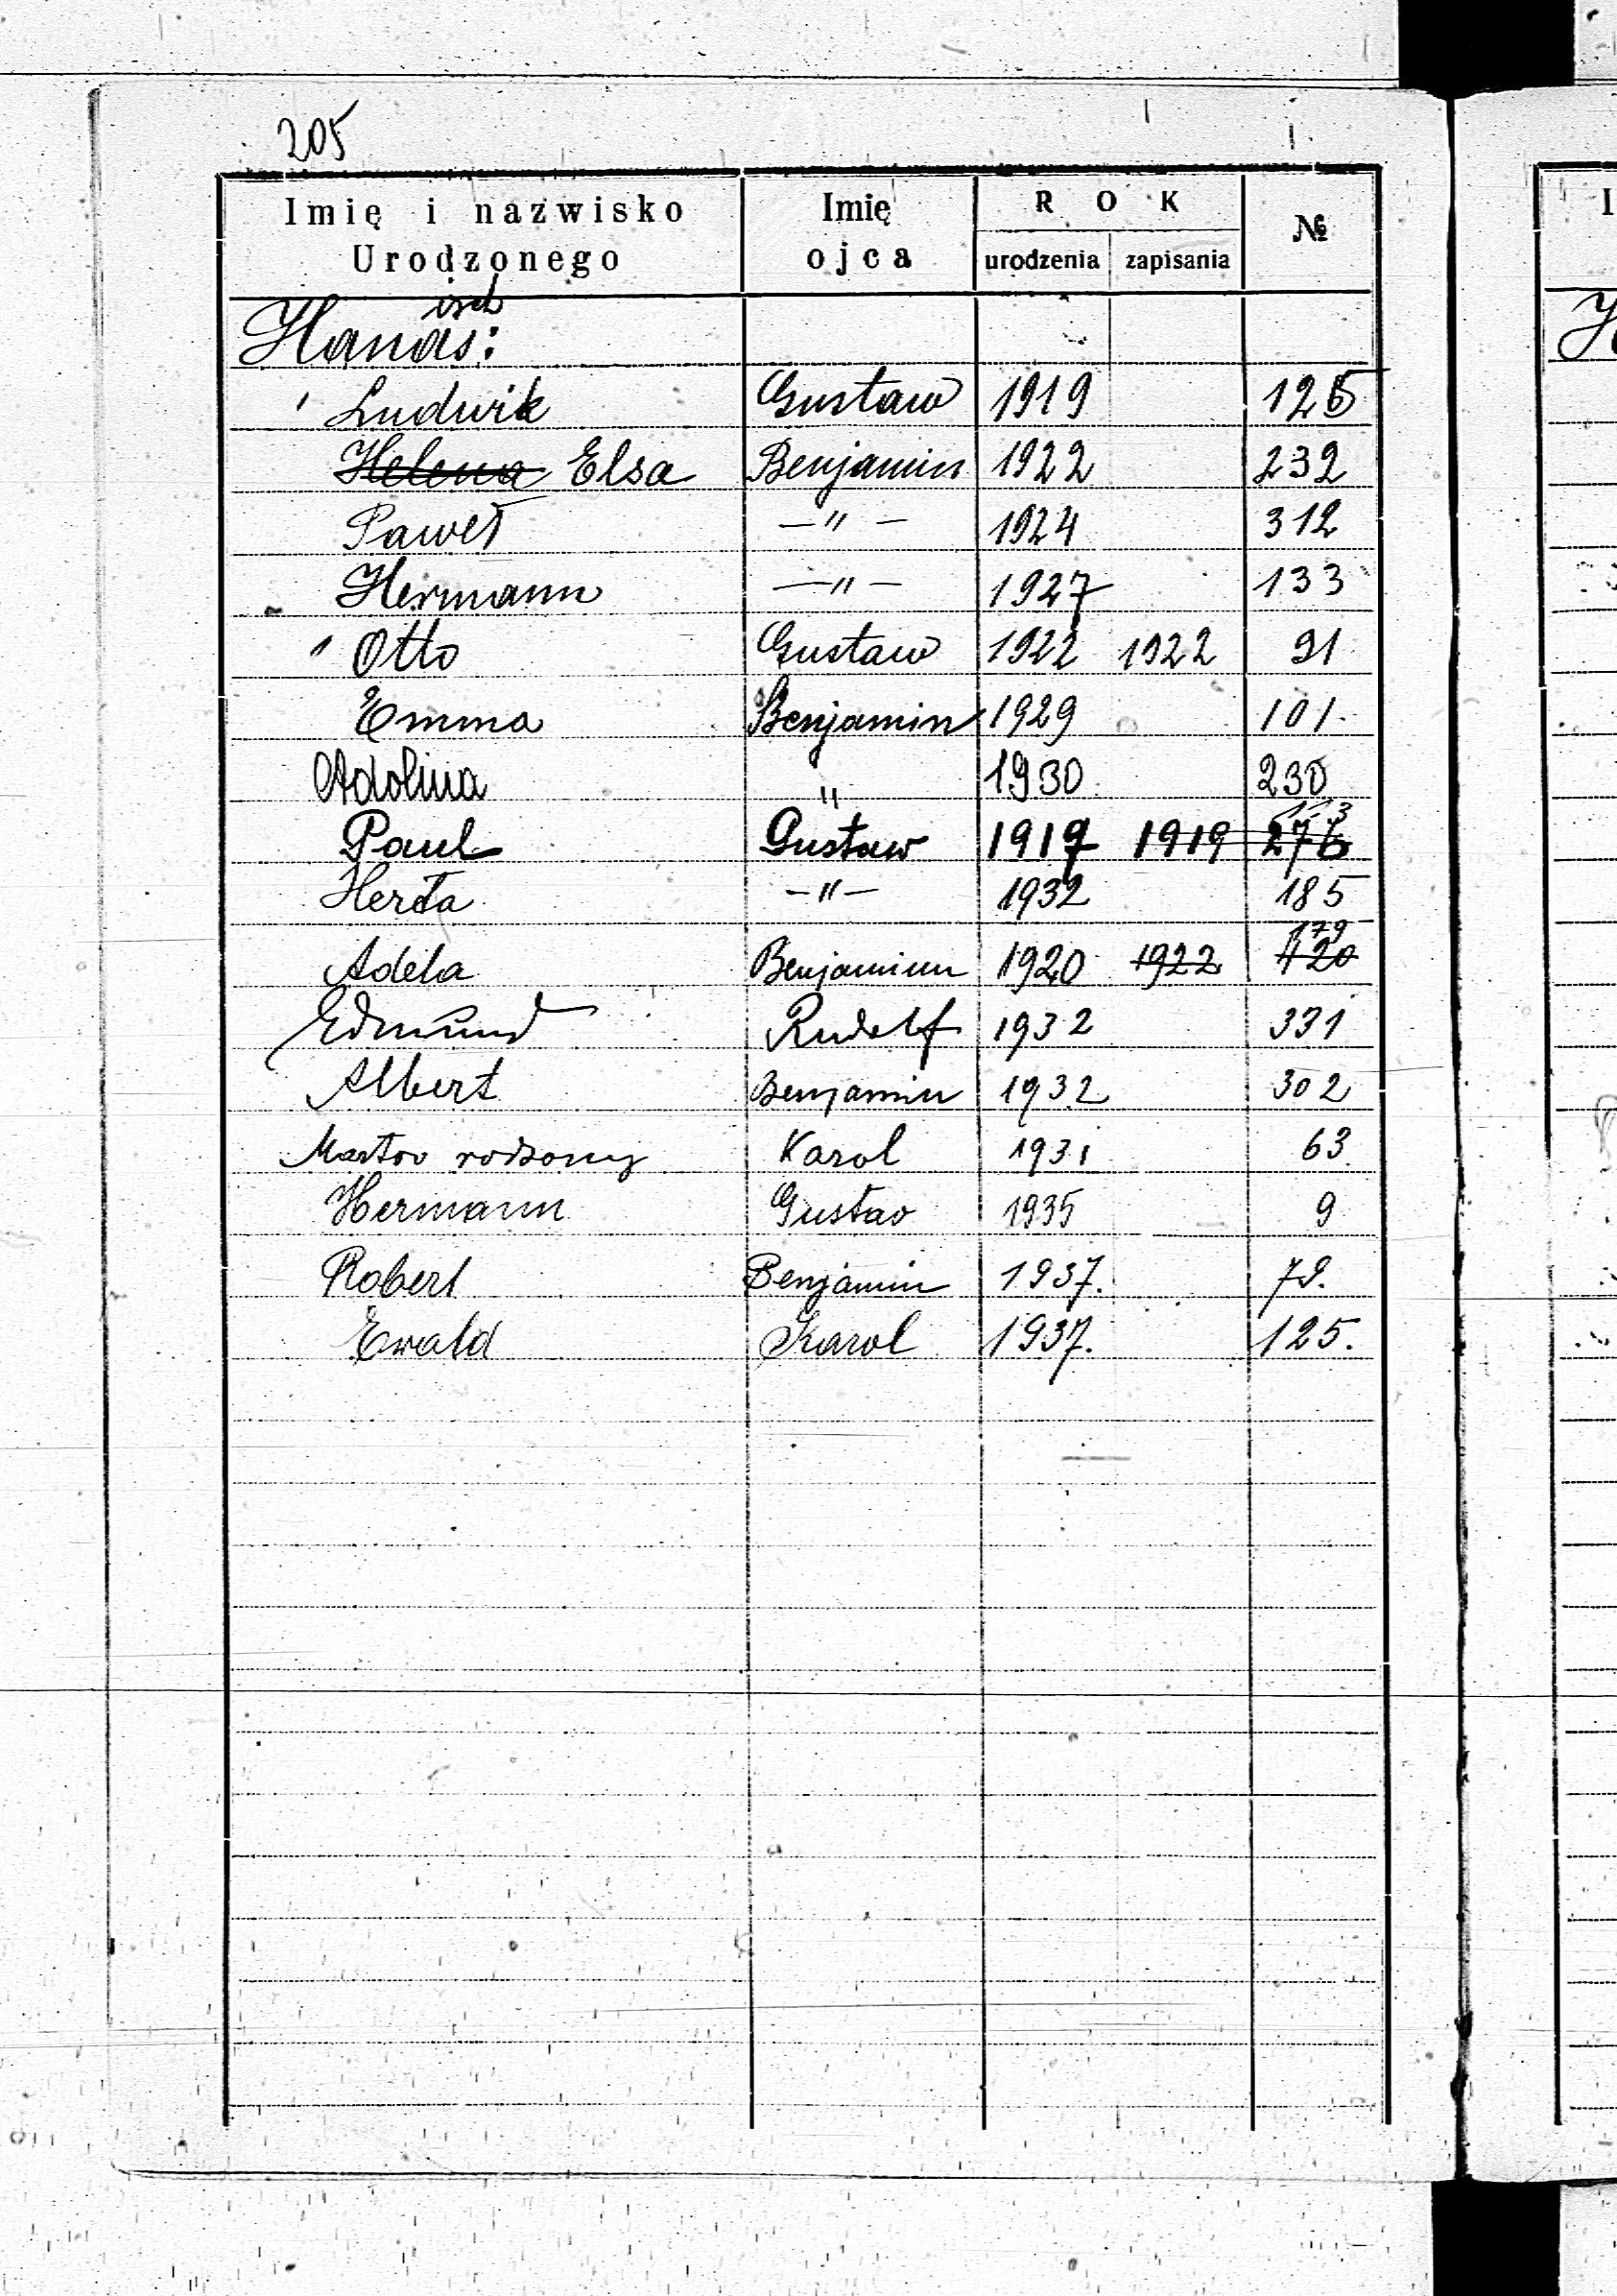 205
Imię i nazwisko Urodzonego Imię ojca ROK urodzenia zapisania №
isch
Hanas:
Ludwik Gustaw 1919 126
Helena Elsa Benjamin 1922 232
Paweł —"— 1924 312
Hermann —"— 1927 133
Otto Gustaw 1922 1922 91
Emma Benjamin 1929 101.
Adolina " 1930 230
113
Paul Gustaw 1917 1919 276
Herta —"— 1932 185
179
Adela Benjamin 1920 1922 120
Edmund Rudolf 1932 331
Albert Benjamin 1932 302
Martwo rodzony Karol 1931 63
Hermann Gustav 1935 9
Robert Benjamin 1937. 79.
Ewald Karol 1937. 125.